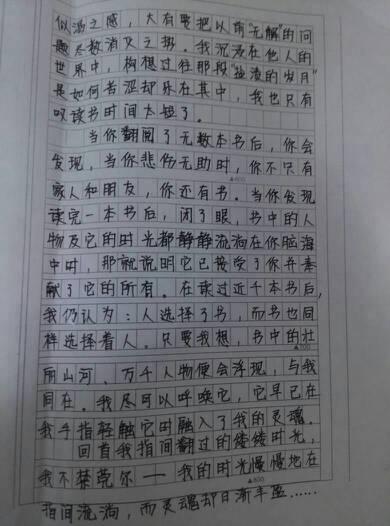 似渴之感，大有要把以前"无解"的问
题尽数消灭之势。我沉浸在他人的
世界中，构想过往那段"蹉跎的岁月"
是如何苦涩却乐在其中，我也只有
叹读书时间太短了。
当你翻阅了无数本书后，你会
发现，当你悲伤无助时，你不只有
▲400
家人和朋友，你还有书。当你发现
读完一本书后，闭了眼，书中的人
物及它的时光都静静流淌在你脑海
中时，那就说明它已接受了你并奉
献了它的所有。在读过近千本书后，
我仍认为：人选择了书，而书也同
样选择着人。只要我想，书中的壮
丽山河、万千人物便会浮现，与我
同在。我尽可以呼唤它，它早已在
我手指轻触它时融入了我的灵魂。
回首我指间翻过的偻偻时光，
我不禁莞尔——我的时光慢慢地在
▲800
指间流淌，而灵魂却日渐丰盈……